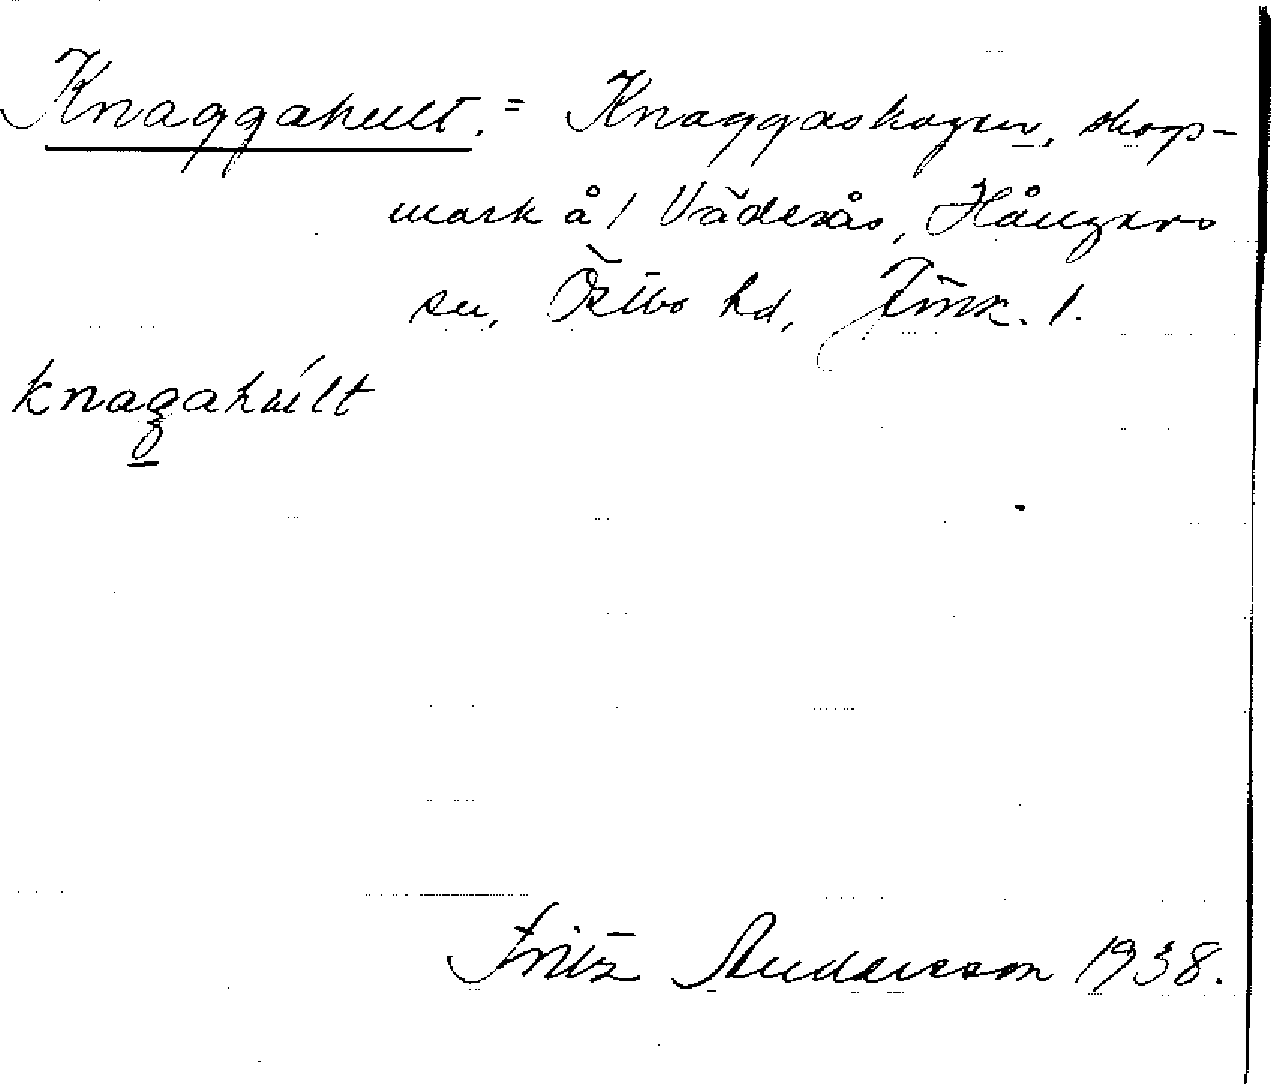 Knaggahult. = Knaggaskogen, skogs-
mark å / Väderås, Hångers
sn, Östbo hd, Jönk. l.
knagahult
Fritz Andersson 1938.